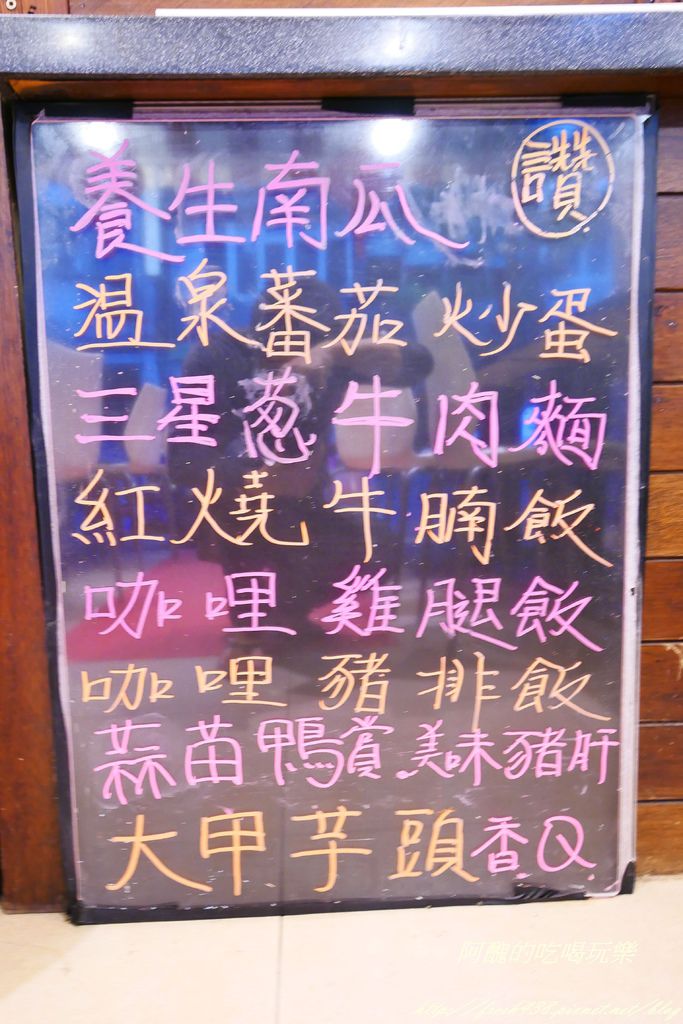 養生南瓜 讚
温泉蕃茄炒蛋
三星葱牛肉麵
紅燒牛腩飯
咖哩雞腿飯
咖哩豬排飯
蒜苗鴨賞美味豬肝
大甲芋頭香Q
阿醜的吃喝玩樂